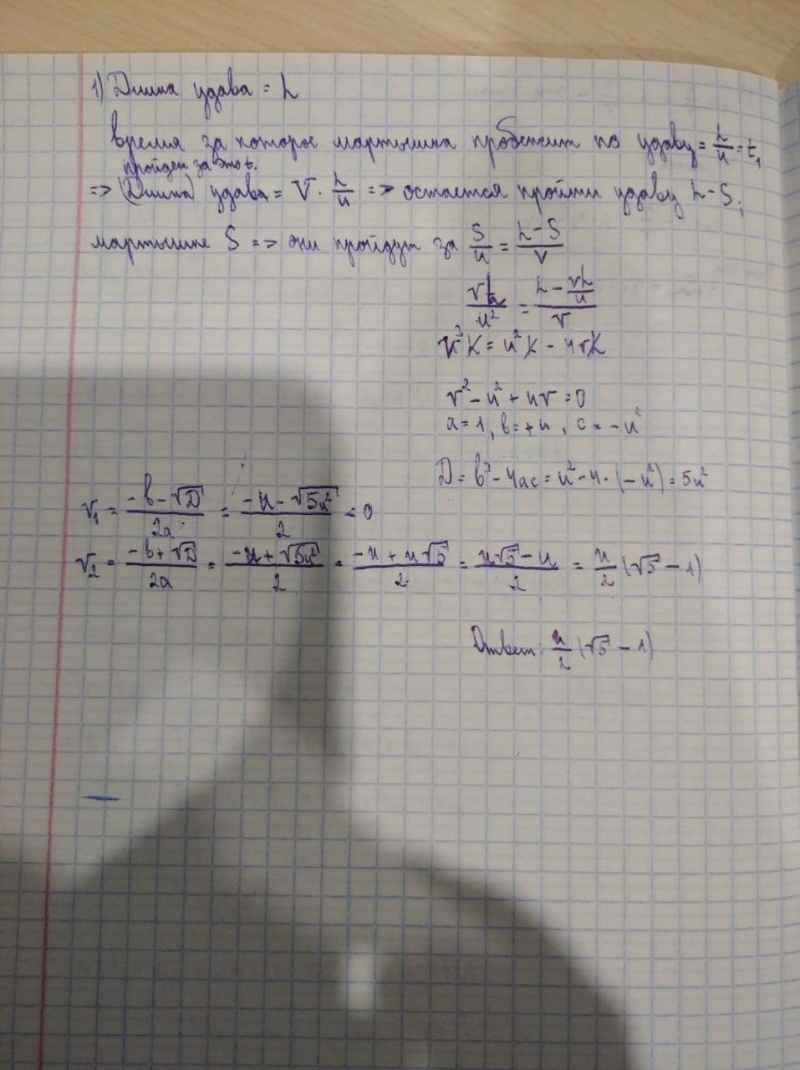 1) Длина удава = L
время за которое мартышка пробежит по удаву = L/u = t₁
пройдет за это t.
=> (Длина) удава = V · L/u => остается пройти удаву L - S,
мартышке S => они пройдут за S/u = (L - S)/V
VL/u² = (L - VL/u)/V
V²L = u²L - uVL
V² - u² + uV = 0
a = 1, b = +u, c = -u²
D = b² - 4ac = u² - 4 · (-u²) = 5u²
V₁ = (-b - √D)/2a = (-u - √5u²)/2 < 0
V₂ = (-b + √D)/2a = (-u + √5u²)/2 = (-u + u√5)/2 = (u√5 - u)/2 = u/2 (√5 - 1)
Ответ: u/2 (√5 - 1)